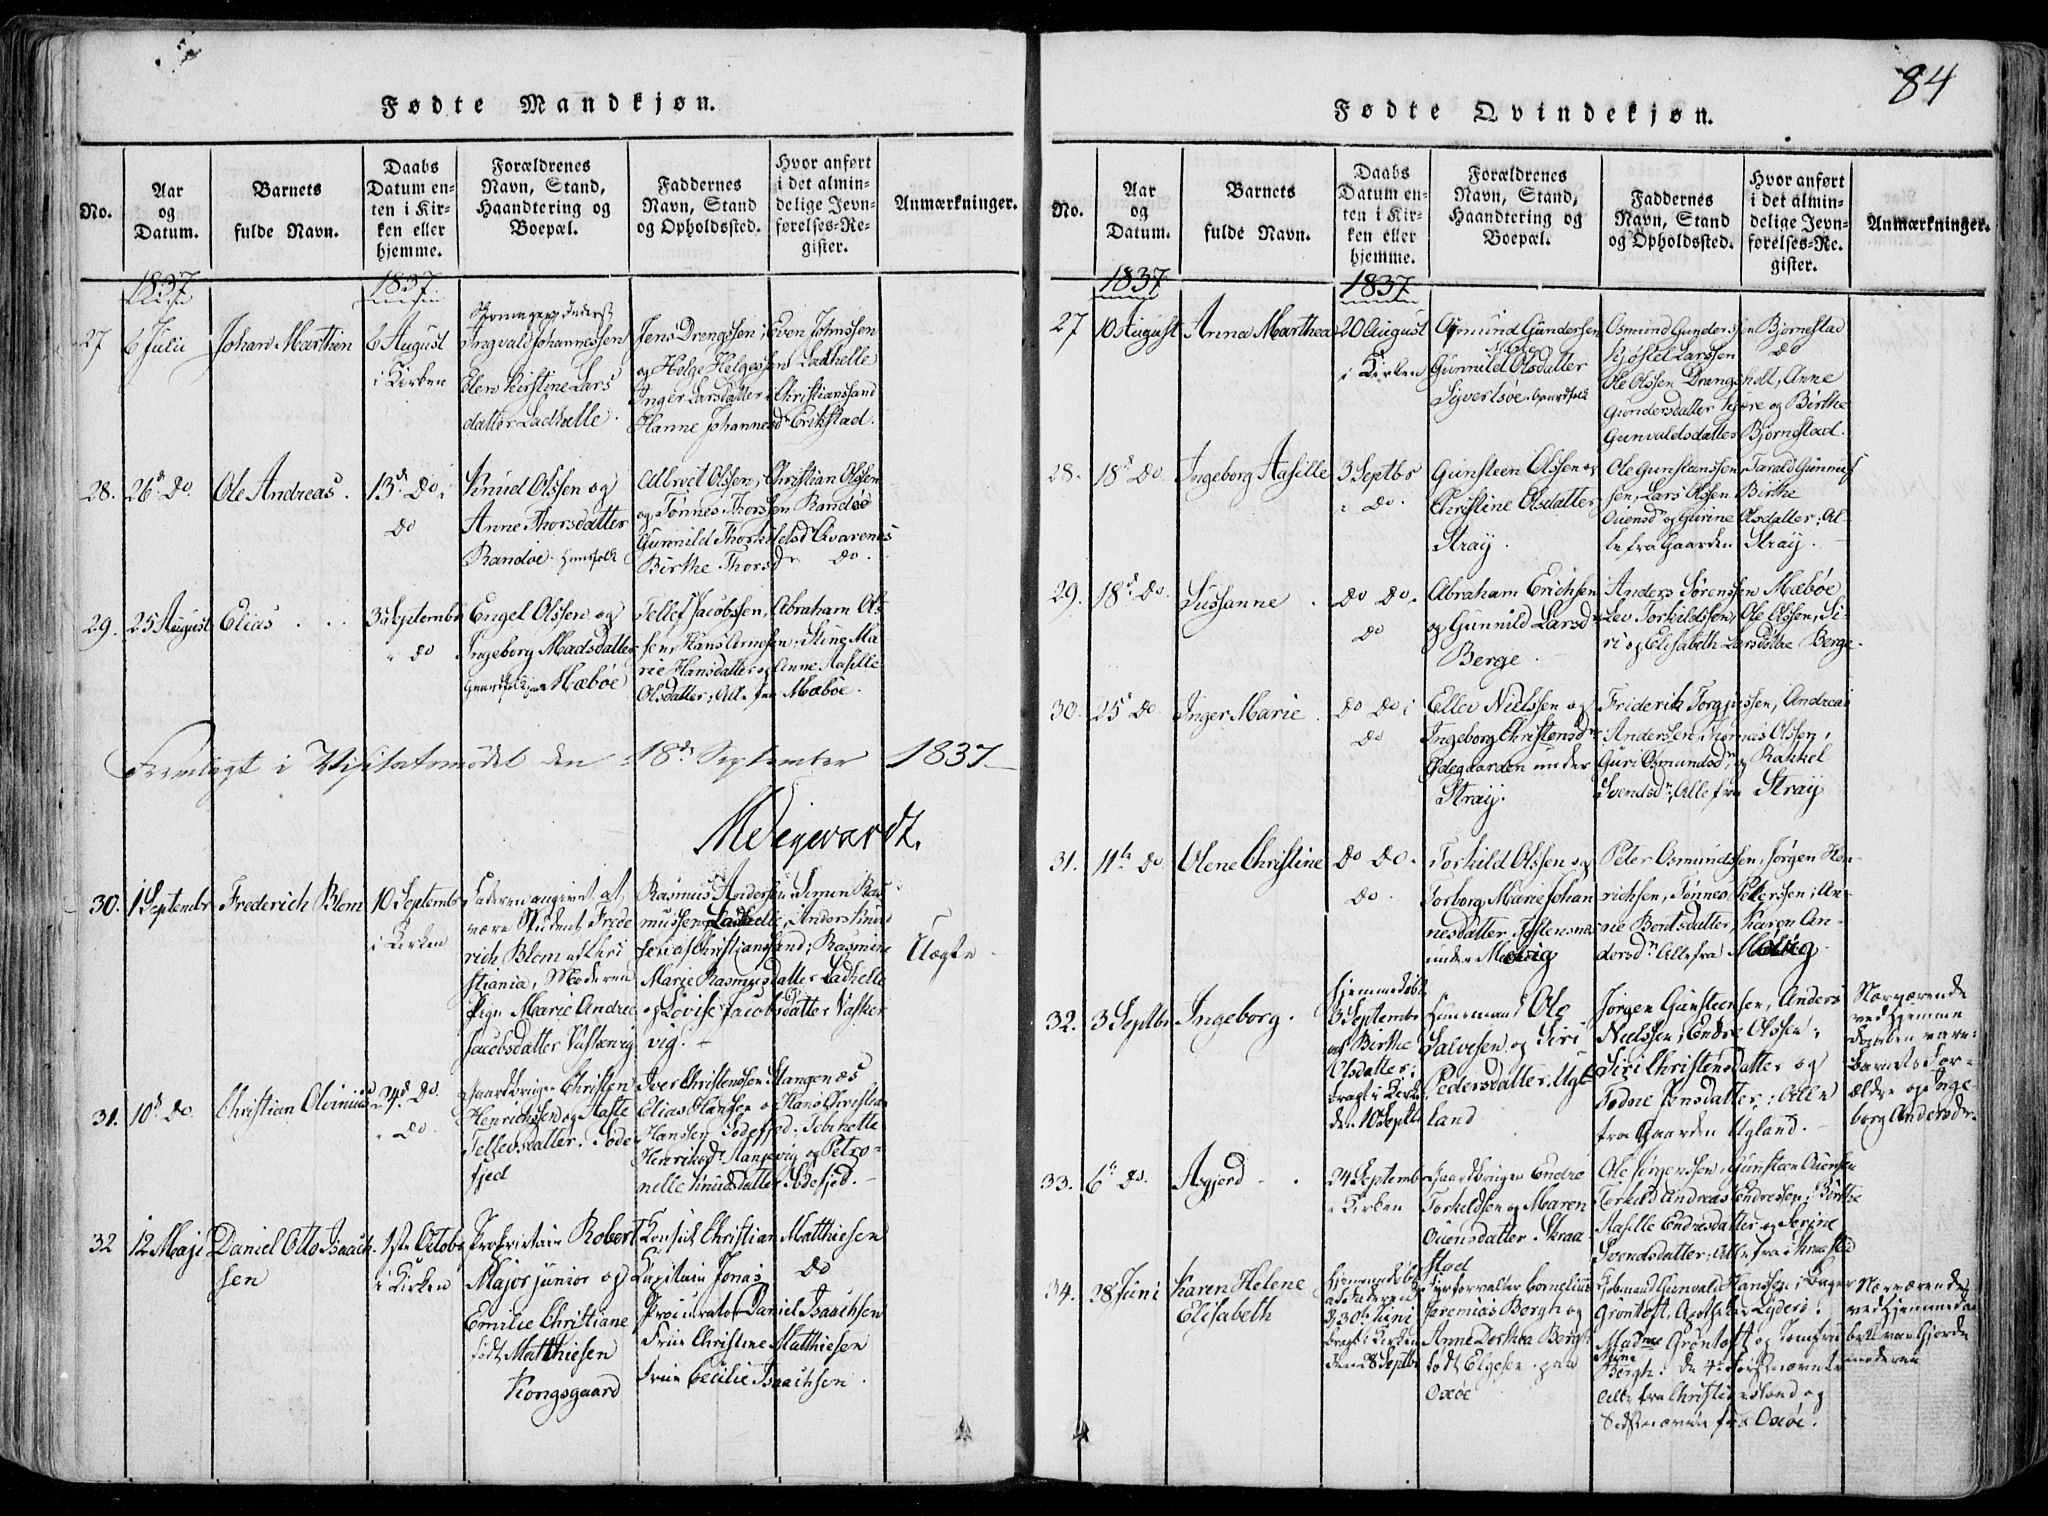 84
Fødte Mandkjøn.
No.
Aar
og
Datum.
Barnets
fulde Navn.
Daabs
Datum en-
ten i Kir-
ken eller
hjemme.
Forældrenes
Navn, Stand,
Haandtering og
Boepæl.
Faddernes
Navn, Stand
og Opholdssted.
Hvor anført
i det almin-
delige Jevn-
førelses-Re-
gister.
Anmærkninger.
1837
1837
27
6 Julii
Johan Marthin
6 August
i Kirken
Ingvald Johannessen
Elen Kirstine Lars
datter Ladhelle.
Jens Drengssen, Even Johnssen
og Helge Helgessen Ladhelle
Inger Larsdatter Christianssand
Hanne Johannesd Erikstad.
28.
26 Do.
Ole Andreas.
13 Do i
Do
Knud Olssen og
Anne Thorsdatter
Randøe
Albret Olssen, Christian Olssen
og Tønnes Thorssen Randøe
Gunnild Thorkildsd Qvarenes
Birthe Thorsd Do.
29.
25 August
Elias
3 September
i Do
Engel Olssen og
Ingeborg Madsdatter
Mæbøe
Tellef Jacobssen, Abraham Ols
sen, Hans
rie Hansdatter og Anne Aasille
Olsdatter, Alle fra Mæbøe.
Fremlagt i Visitatsmødet den 18de September 1837
30.
1 Septembr
Frederich Blom
10 Septembr
i Kirken
Faderen angivet at
være Student Frede
rich Blom af Chri
stiania, Moderen
Pige Marie Andrea
Jacobsdatter
Rasmus Andersen, Simen Ras
mussen Ladhelle, Anders Knud
sen af Christianssand, Rasmine
Marie Rasmusdatter Ladhelle
og Lovise Jacobsdatter Vasker
vig.
Uægte
31.
10 Do.
Christian Olinius
24 Do.
i Do.
Gaardbruger Christen
Henrichssen og Aaste
Tellevsdatter. Søde
fjed
Iver Christenssen Stangenæs
Elias Hansen og Hans Christian
Hanssen Sødefjed,
Henriksd Stangevig og Petro-
nelle Knudsdatter Sødefjed.
32
12 Maji
Daniel Otto Isaach
sen
1ste Octob
i Kirken
Proprietair Robert
Major junior og
Emilie Christiane
født Matthiesen
Kongsgaard
Consul Christian Matthiesen
Capitain Jonas Do
Procurator Daniel Isaachsen
Frue Christine Matthiesen
Frue Cecilie Isaachsen.
Fødte Qvindekjøn.
No.
Aar
og
Datum.
Barnets
fulde Navn.
Daabs
Datum en-
ten i Kir-
ken eller
hjemme.
Forældrenes
Navn, Stand,
Haandtering og
Boepæl.
Faddernes
Navn, Stand
og Opholdssted.
Hvor anført
i det almin-
delige Jevn-
førelses-Re-
gister.
Anmærkninger.
1837
1837
27
10 August
Anna Marthea
20 August
i Kirken
Osmund Gundersen
Gunnild Olsdatter
Osmund Gunderssen Bjørnestad
Kjøstel Larssen Do
Ole Olssen Drangsholt, Anne
Gundersdatter og Birthe
Gunvaldsdatter Bjørnestad.
28.
18 Do.
Ingeborg Aasille
3 Septbr
i Do.
Gunsteen Olssen og
Christine Olsdatter
Straÿ.
Ole Gunstanssen, Tarald Gunnuf
sen, Lars Olssen Birthe
Ouensd og Gurine Olsdatter, Al-
le fra Gaarden Straÿ.
29.
18 Do.
Sussanne
Do Do.
Do
Abraham Erichsen
og Gunnild Larsd
Berge
Anders Sørenssen Mæbøe
Lev Torkildssen, Ole Olssen, Si-
ri og Elisabeth Larsdøttre Berge
30.
25 Do.
Inger Marie
Do Do i
Do
Ellev Nielssen og
Ingeborg Christensd
Ødegaarden under
Straÿ.
Friderich Torgjussen, Andreas
Andersen, Thomas Olssen,
Guri Osmundsd, og Rakkel
Svendsd, Alle fra Straÿ
31.
11 Do
Olene Christine
Do Do.
Do.
Torkild Olssen og
Torborg Marie Johan
nesdatter
under
Peter Osmundssen, Jørgen Hen-
richsen, Tønnes Peterssen, An-
ne Bentsdatter, Karen An-
dersd Alle fra
32.
3 Septbr
Ingeborg.
hjemmedøbt
3 Septembr
af Birthe
Olsdatter,
bragt i Kirken
den 10 Septbr
Huusmand Ole
Salvesen og Siri
Pedersdatter, Ug-
land
Jørgen Gunsteensen, Anders
Nielssen, Endre Olssen,
Siri Christensdatter og
Todne Jensdatter, Alle
fra Gaarden Ugland.
Nærværende
ved Hjemme
Daaben vare
Barnets For-
ældre og Inge-
borg Andersdr.
33.
6 Do.
Asgjerd
24 Septembr
i Kirken
Gaardbruger Endre
Torkeldsen og Maren
Ouensdatter Skraa
stad
Ole Jørgenssen, Gunsteen Ouensen
Torkeld Andreas Endressen, Birthe
Aasille Endresdatter og Serine
Svendsdatter, Alle fra Skraastad
34.
28 Juni
Karen Helene
Elisabeth
hjemmedøbt
af Faderen
d 30 Juni
bragt i Kirken
den 28 Septbr
Fyrforvalter Cornelius
Jeremias Borgh og
Anne Dorthea Borgh
født Elgesen paa
Oxøe
Kjøbmand Gunvald Hanssen i Bager
Grøntoft, Apotheker
Madme Grøntoft og Jomfru
Bergh. De 4 førstnævnte
Alle fra Christianssand og
Sidstnævnte fra Oxøe.
Nærværende
ved Hjemmeda
ben var Gjorde
moderen